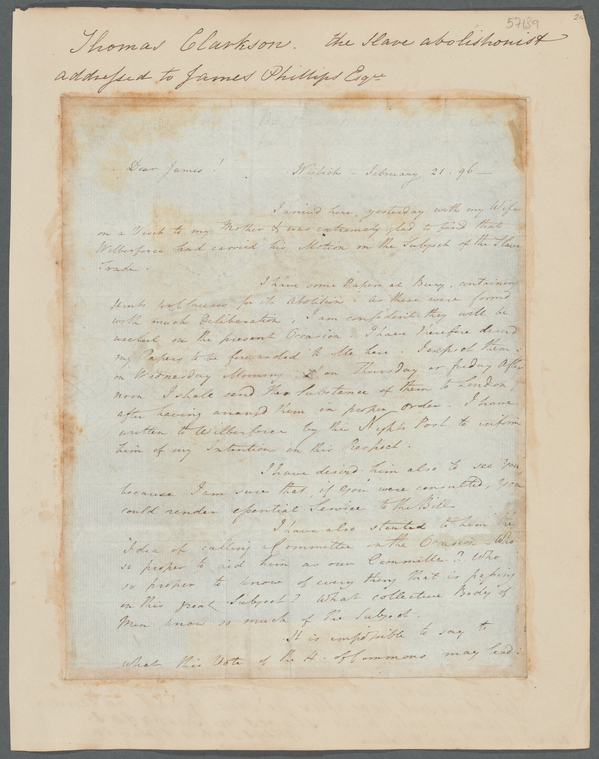 57189
Thomas Clarkson. the Slave abolishonist
addressed to James Phillips Esqre
Dear James! Wisbich - February 21. 96 -
I arrived here, yesterday with my Wife
on a Visit to my Mother & was extremely glad to find that
Wilberforce had carried his Motion on the Subject of the Slave
Trade.
I have some Papers at Bury, containing
Hints for Clauses for its Abolition. As these were formed
with much Deliberation, I am confident they will be
useful on the present Occasion. I have therefore desired
my Papers to be forwarded to Me here. I expect them
on Wednesday Morning & on Thursday or friday After
noon I shall send the Substance of them to London
after having arranged them in proper order. I have
written to Wilberforce by this Nights Post to inform
him of my Intention in this Respect.
I have desired him also to see You,
because I am sure that, if You were consulted, You
could render essential Service to the Bill.
I have also started to him the
Idea of calling a Committee on the Occasion. Who
so proper to aid him as our Committee? Who
so proper to know of every thing that is passing
on this great Subject? What collective Body of
Men know so much of the Subject.
It is impossible to say to
what this Vote of the H. of Commons may lead: